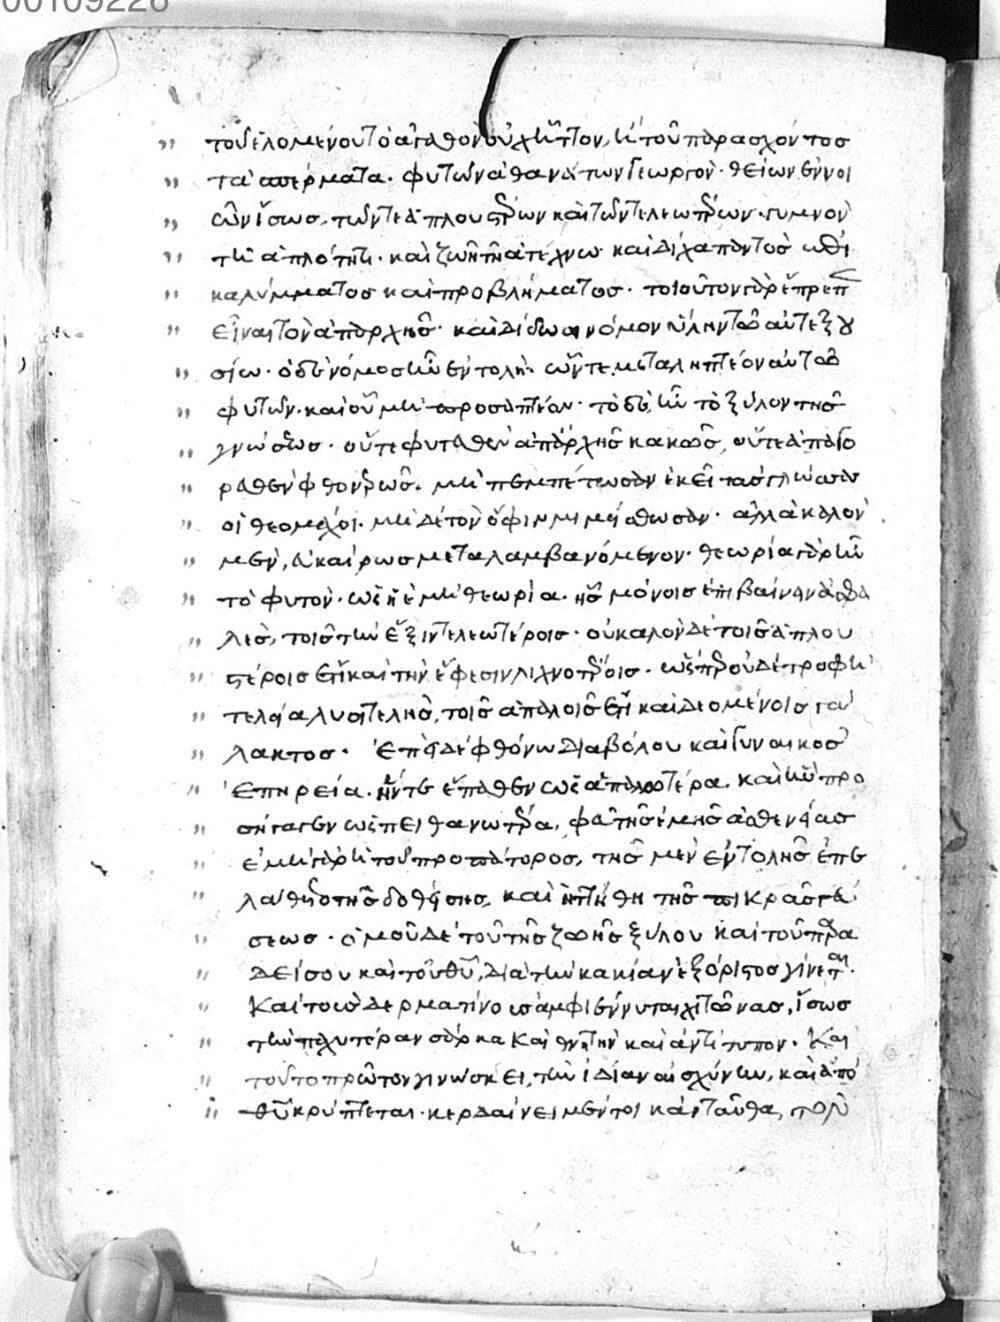 00109228
τοῦ ἑλομένου τὸ ἀγαθὸν οὐχ ἧττον, ἢ τοῦ παρασχόντος
τὰ σπέρματα· φυτῶν ἀθανάτων γεωργὸν· θείων ἐννοι
ῶν ἴσως, τῶν τε ἁπλουστέρων καὶ τῶν τελεωτέρων· γυμνὸν
τῇ ἁπλότητι· καὶ ζωῇ τῇ ἀτέχνω καὶ δίχα παντὸς
καλύμματος καὶ προβλήματος· τοιοῦτον γὰρ ἔπρεπ
εἶναι τὸν ἀπαρχῆς· καὶ δίδωσι νόμον ὕλην τῶ αὐτεξου
σίω· ὁ δὲ νόμος ἦν ἐντολὴ· ὧν τε μεταληπτέον αὐτῶ
φυτῶν· καὶ οὗ μὴ προσαπτέον· τὸ δὲ, ἦν τὸ ξύλον τῆς
γνώσεως· οὔτε φυτευθὲν ἀπαρχῆς κακῶς, οὔτε ἀπαγο
ρευθὲν φθονερῶς. μὴ πεμπέτωσαν ἐκεῖ τὰς γλώσσας
οἱ θεομάχοι· μὴ δὲ τὸν ὄφιν μιμείσθωσαν· ἀλλὰ καλὸν
μὲν, εὐκαίρως μεταλαμβανόμενον· θεωρία γὰρ ἦν
τὸ φυτὸν· ὡς ἡ ἐμὴ θεωρία· ἧς μόνοις ἐπιβαίνειν ἀσφα
λὲς, τοῖς τὴν ἕξιν τελεωτέροις· οὐ καλὸν δὲ τοῖς ἁπλου
στέροις ἔτι καὶ τὴν ἔφεσιν λιχνοτέροις· ὥσπερ οὐδὲ τροφὴ
τελεία λυσιτελὴς, τοῖς ἁπαλοῖς ἔτι καὶ δεομένοις γά
λακτος· Ἐπεὶ δὲ φθόνω διαβόλου καὶ γυναικὸς
ἐπηρεία· ἥν τε ἔπαθεν ὡς ἁπαλωτέρα, καὶ ἣν προ
σήγαγεν ὡς πειθανωτέρα, φεῦ τῆς ἐμῆς ἀσθενείας
ἐμὴ γὰρ ἡ τοῦ προπάτορος, τῆς μὲν ἐντολῆς ἐπε
λάθετο τῆς δοθείσης, καὶ ἡττήθη τῆς πικρᾶς γεύ
σεως· ὁμοῦ δὲ τοῦ τῆς ζωῆς ξύλου καὶ τοῦ παρα
δείσου καὶ τοῦ θυ, διὰ τὴν κακίαν ἐξόριστος γίνεται.
Καὶ τοὺς δερματίνους ἀμφιέννυται χιτῶνας, ἴσως
τὴν παχυτέραν σάρκα καὶ θνητὴν καὶ ἀντίτυπον· Καὶ
τοῦτο πρῶτον γινώσκει, τὴν ἰδίαν αἰσχύνην, καὶ ἀπὸ
θυ κρύπτεται· κερδαίνει μέντοι κἀνταῦθα,